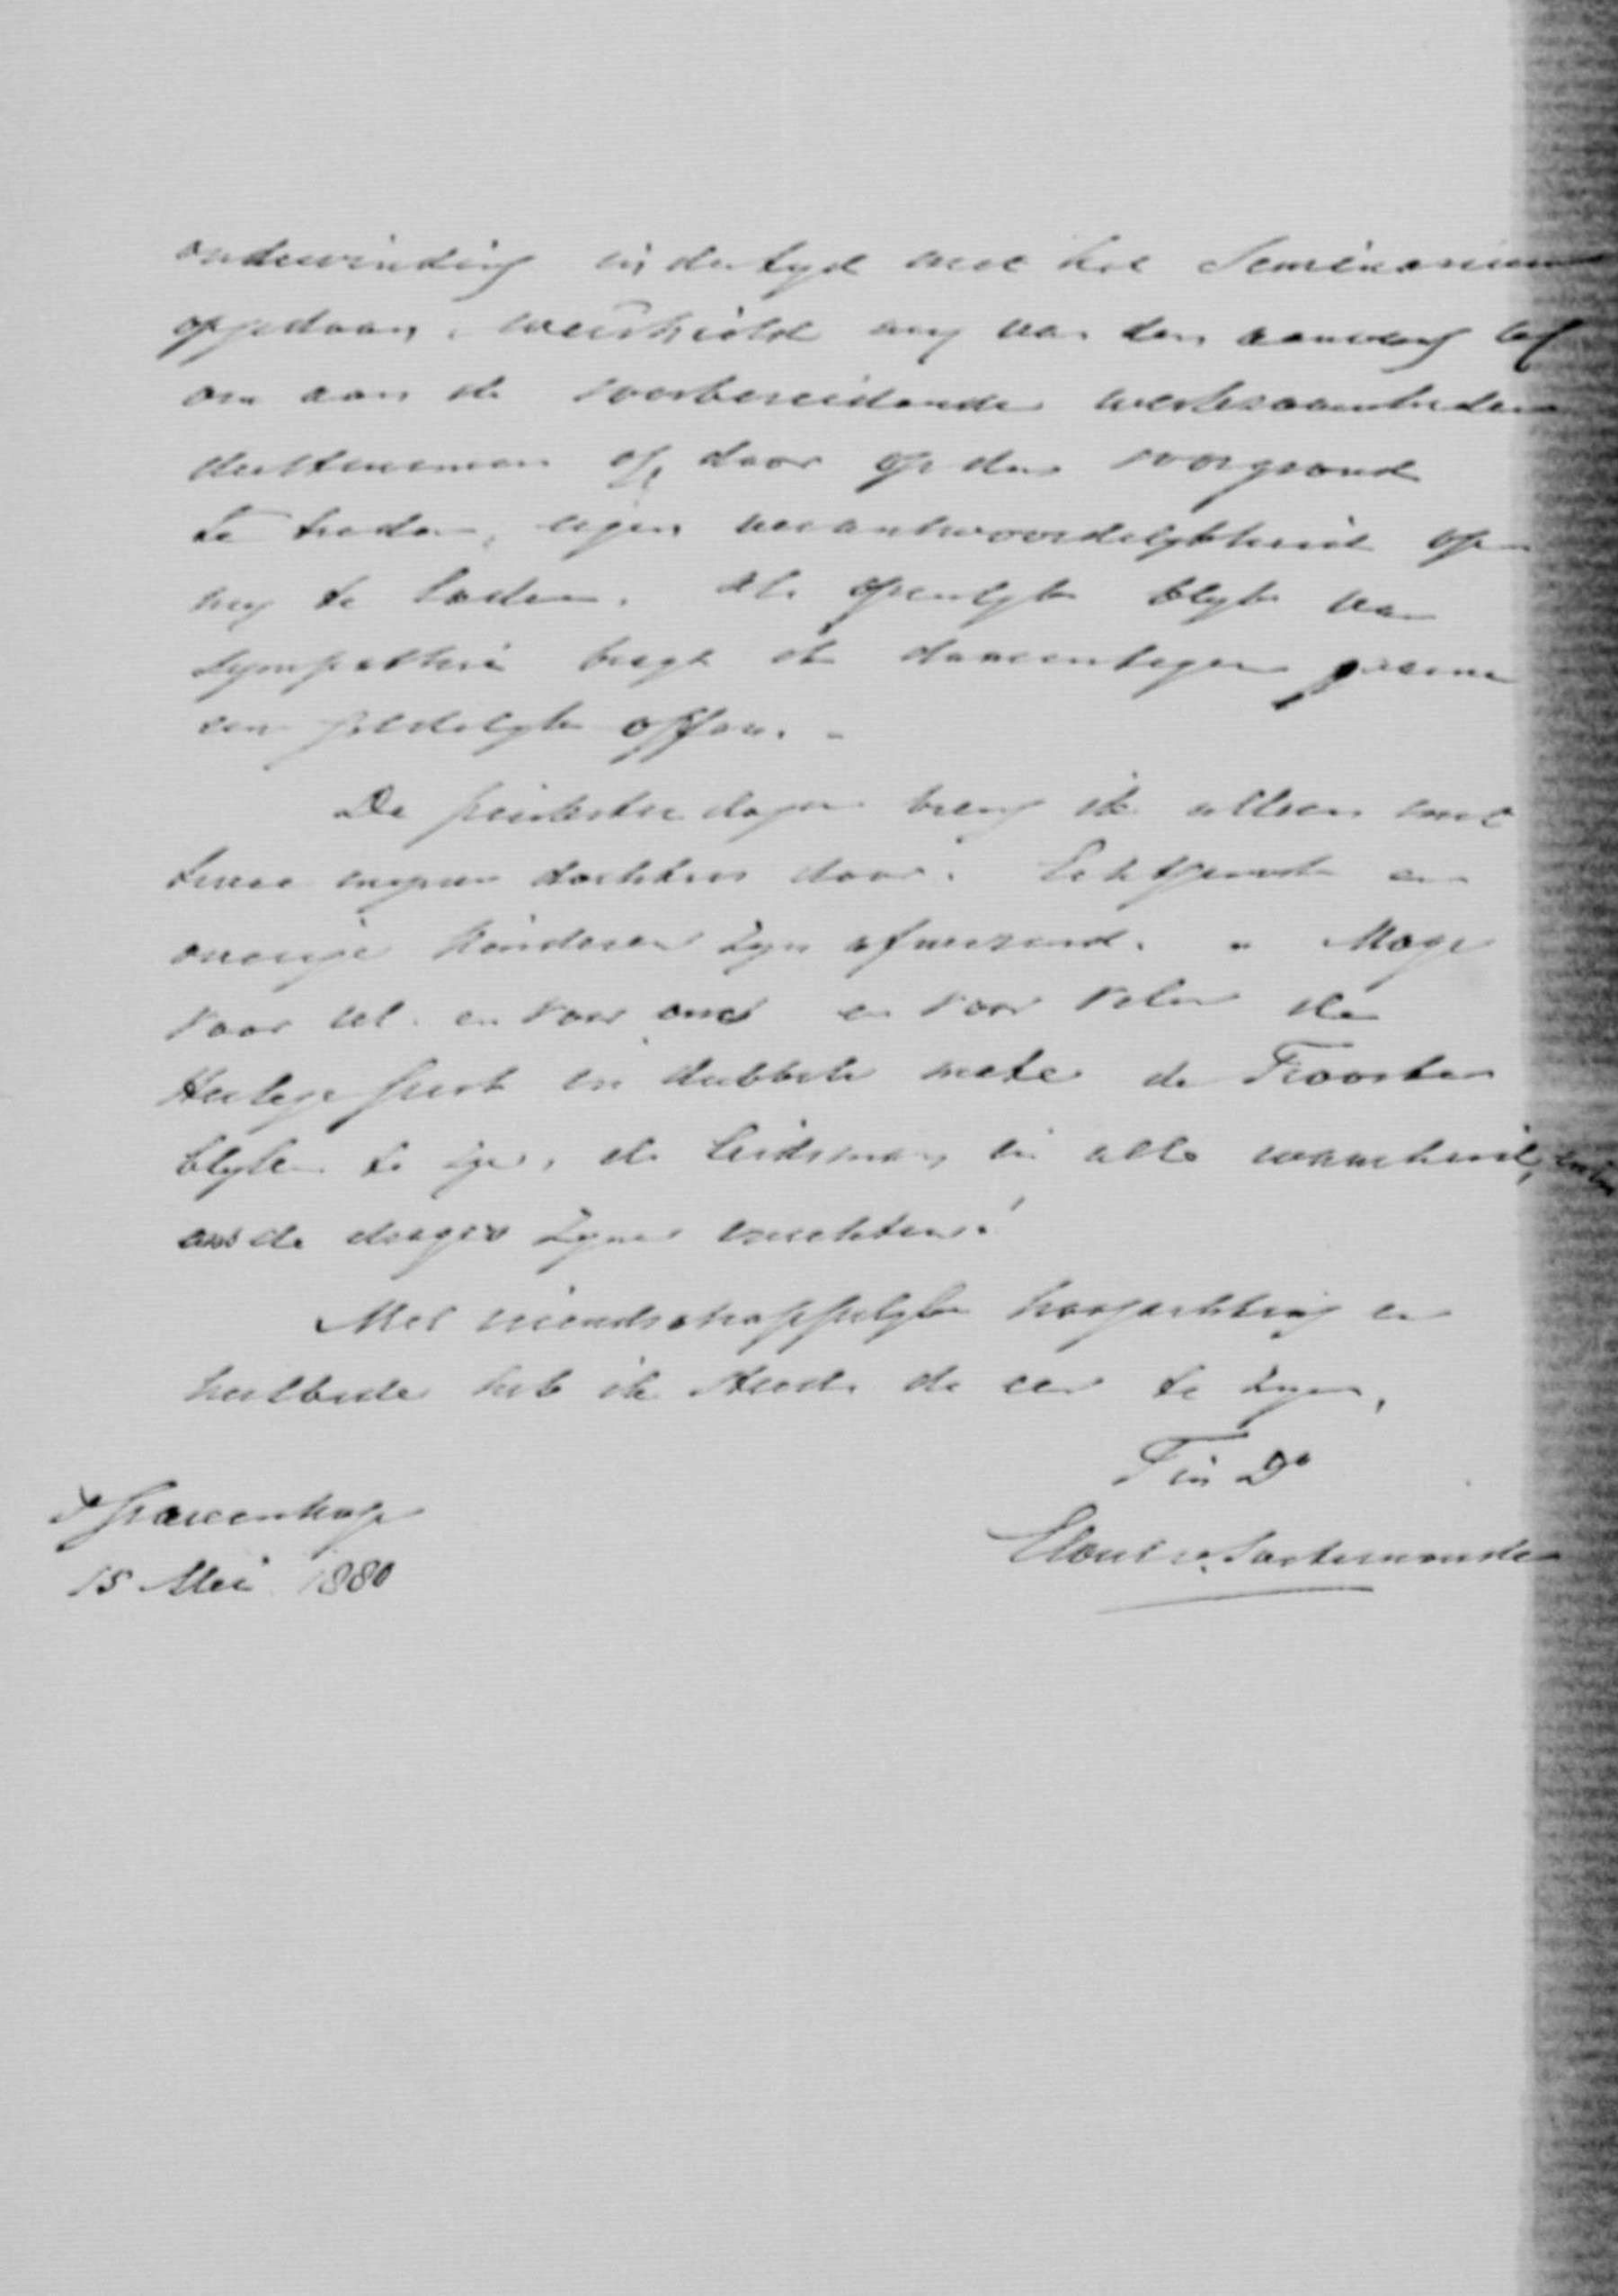 ondervinding in der tyd met het Seminarium
opgedaan, weerhield my van den aanvang af
om aan de voorbereidende werkzaamheden
deeltenemen of, door op den voorgrond
te treden, eigen verantwoordelykheid op
my te laden. Als openlyk blyk van
sympathie bragt ik daarentegen gaarne
een geldelyk offer. -
De pinksterdagen breng ik alleen met
twee myner dochters door. Echtgenoote en
overige kinderen zyn afwezend. - Moge
voor UE. en voor ons en voor velen de
Heilige Geest in dubbele mate de Trooster
blyken te zyn, de Leidsman in alle waarheid,
de drager Zyner vruchten!
Met vriendschappelyke hoogachting en
heilbede heb ik steeds de eer te zyn,
T in D°
Elout v. Soeterwoude
's Gravenhage
15 Mei 1880